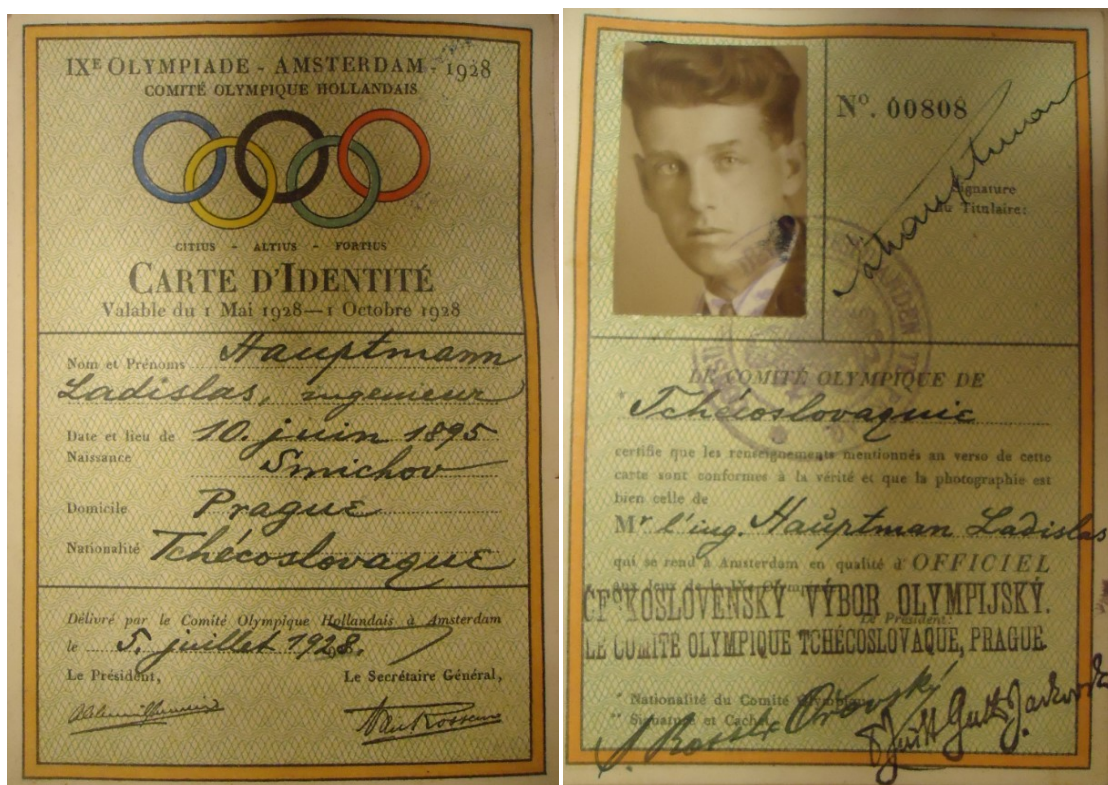 IXE OLYMPIADE - AMSTERDAM - 1928
COMITÉ OLYMPIQUE HOLLANDAIS
CITIUS - ALTIUS - FORTIUS
CARTE D'IDENTITÉ
Valable du 1 Mai 1928—1 Octobre 1928
Nom et Prénoms Hauptmann
Ladislas, ingenieur
Date et lieu de Naissance 10. juin 1895
Smichov
Domicile Prague
Nationalité Tchécoslovaque
Délivré par le Comité Olympique Hollandais à Amsterdam
le 5. juillet 1928.
Le Président, Le Secrétaire Général,
No. 00808
Hauptman
Signature
du Titulaire:
LE COMITÉ OLYMPIQUE DE
* Tchécoslovaquie
certifie que les renseignements mentionnés au verso de cette
carte sont conformes à la vérité et que la photographie est
bien celle de
Mr l'ing. Hauptman Ladislas
qui se rend à Amsterdam en qualité d'OFFICIEL
aux Jeux de la IXe Olympiade
ČESKOSLOVENSKÝ VÝBOR OLYMPIJSKÝ.
Le Président:
LE COMITÉ OLYMPIQUE TCHÉCOSLOVAQUE, PRAGUE.
* Nationalité du Comité Olympique
** Signature et Cachet